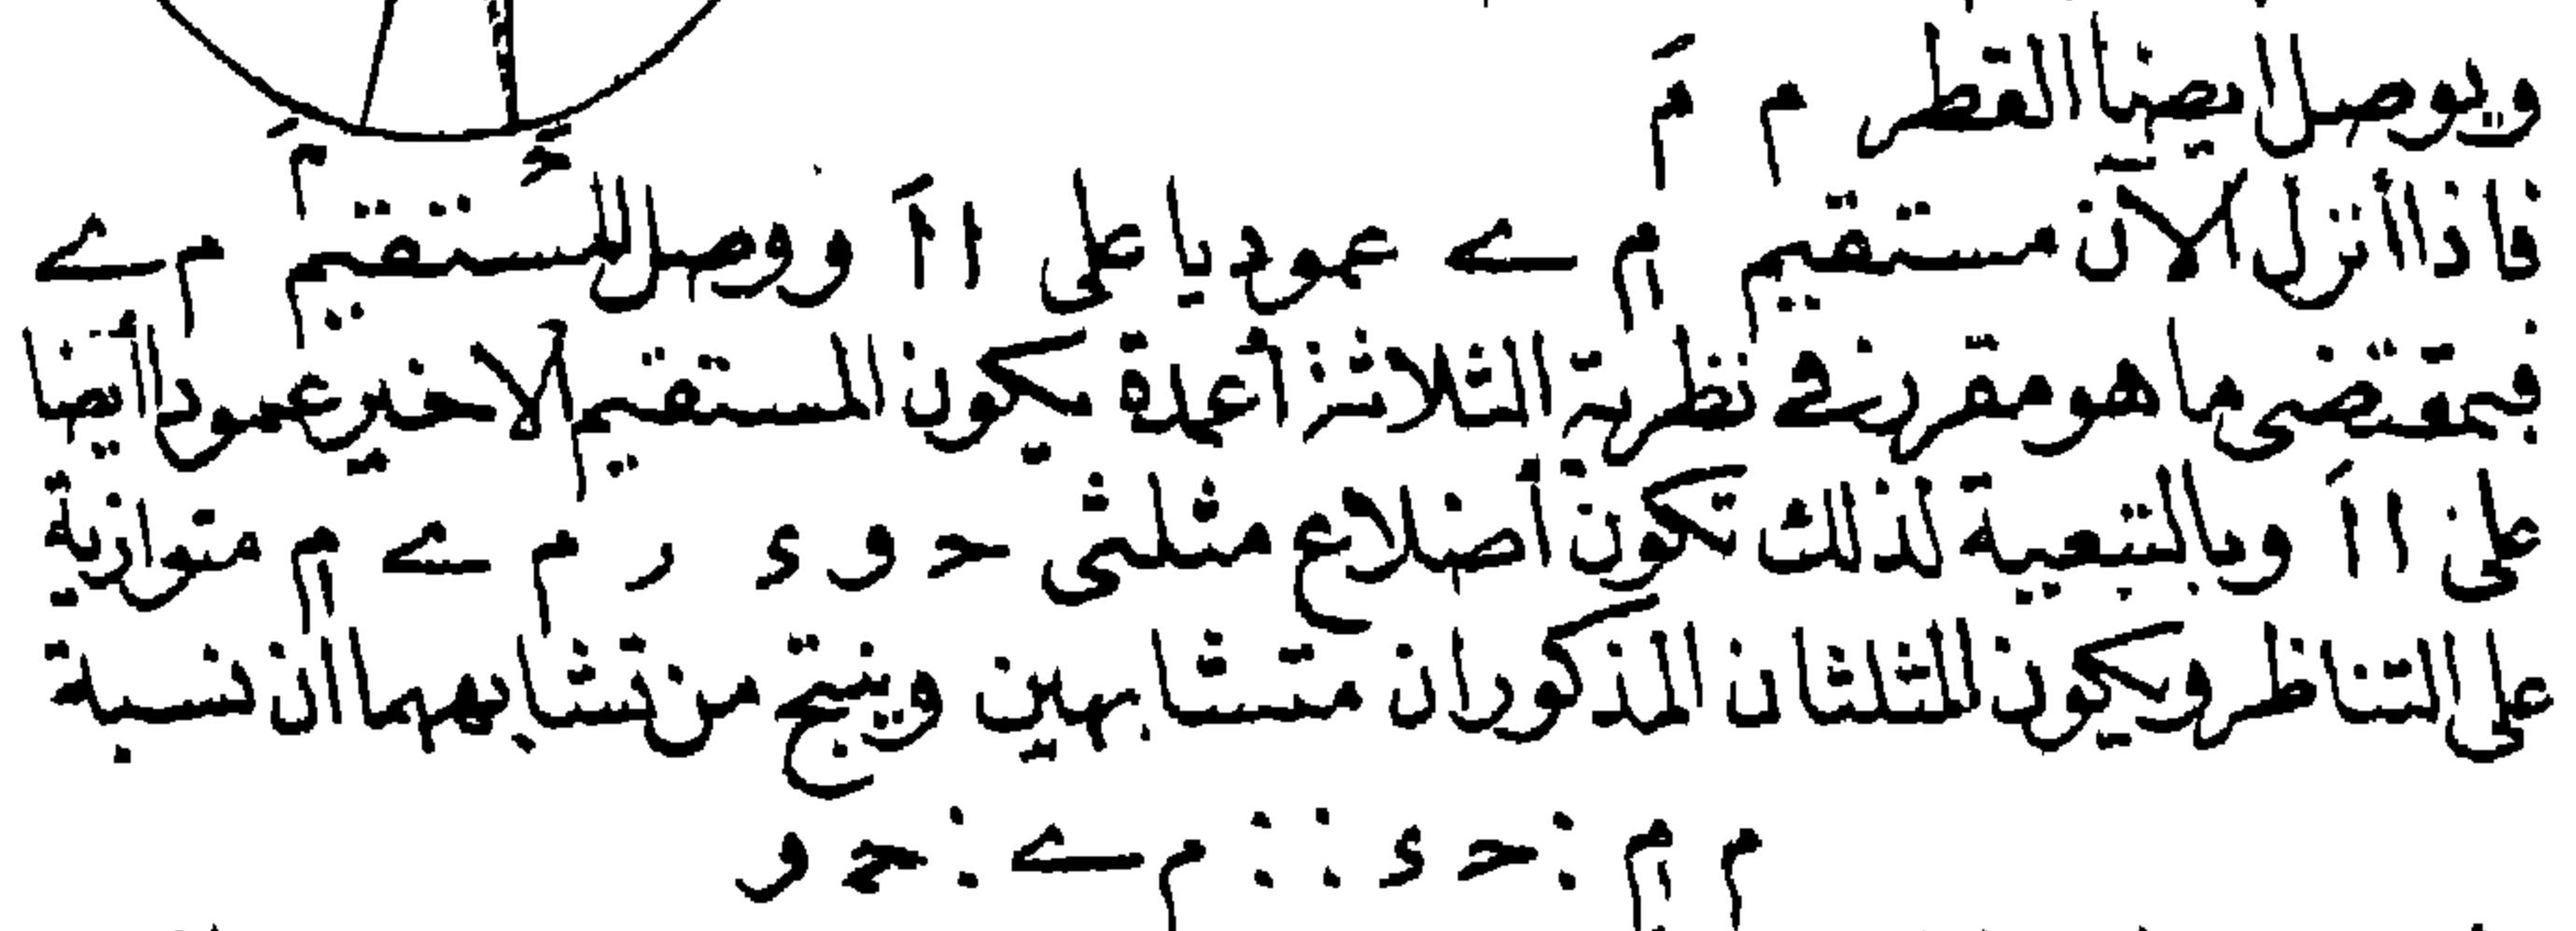 ويوصل ايضا القطر م مَ
مَ حَ
فاذا أنزل الآن مستقيم م͵ ے عموديا على ا اَ ووصل المستقيم م ے
فبمقتضى ما هو مقرر في نظرية الثلاثة أعمدة يكون المستقيم الاخير عمودا أيضا
على ا اَ وبالتبعية لذلك تكون أضلاع مثلثى حـ و ء ر م ے م͵ متوازية
على التناظر ويكون المثلثان المذكوران متشابهين وينتج من تشابههما ان نسبة
م م͵ : حـ ء :: م ے : حـ و